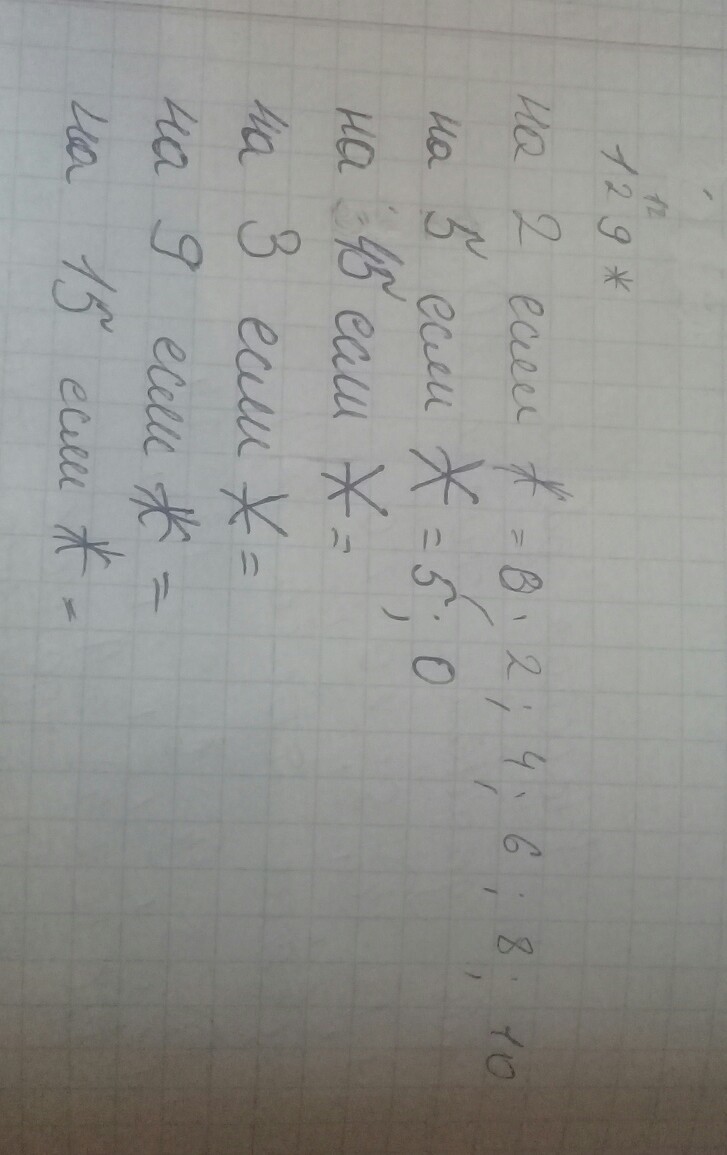 12
129*
на 2 если * = 0; 2; 4; 6; 8; 10
на 5 если * = 5; 0
на 45 если * =
на 3 если * =
на 9 если * =
на 15 если * =